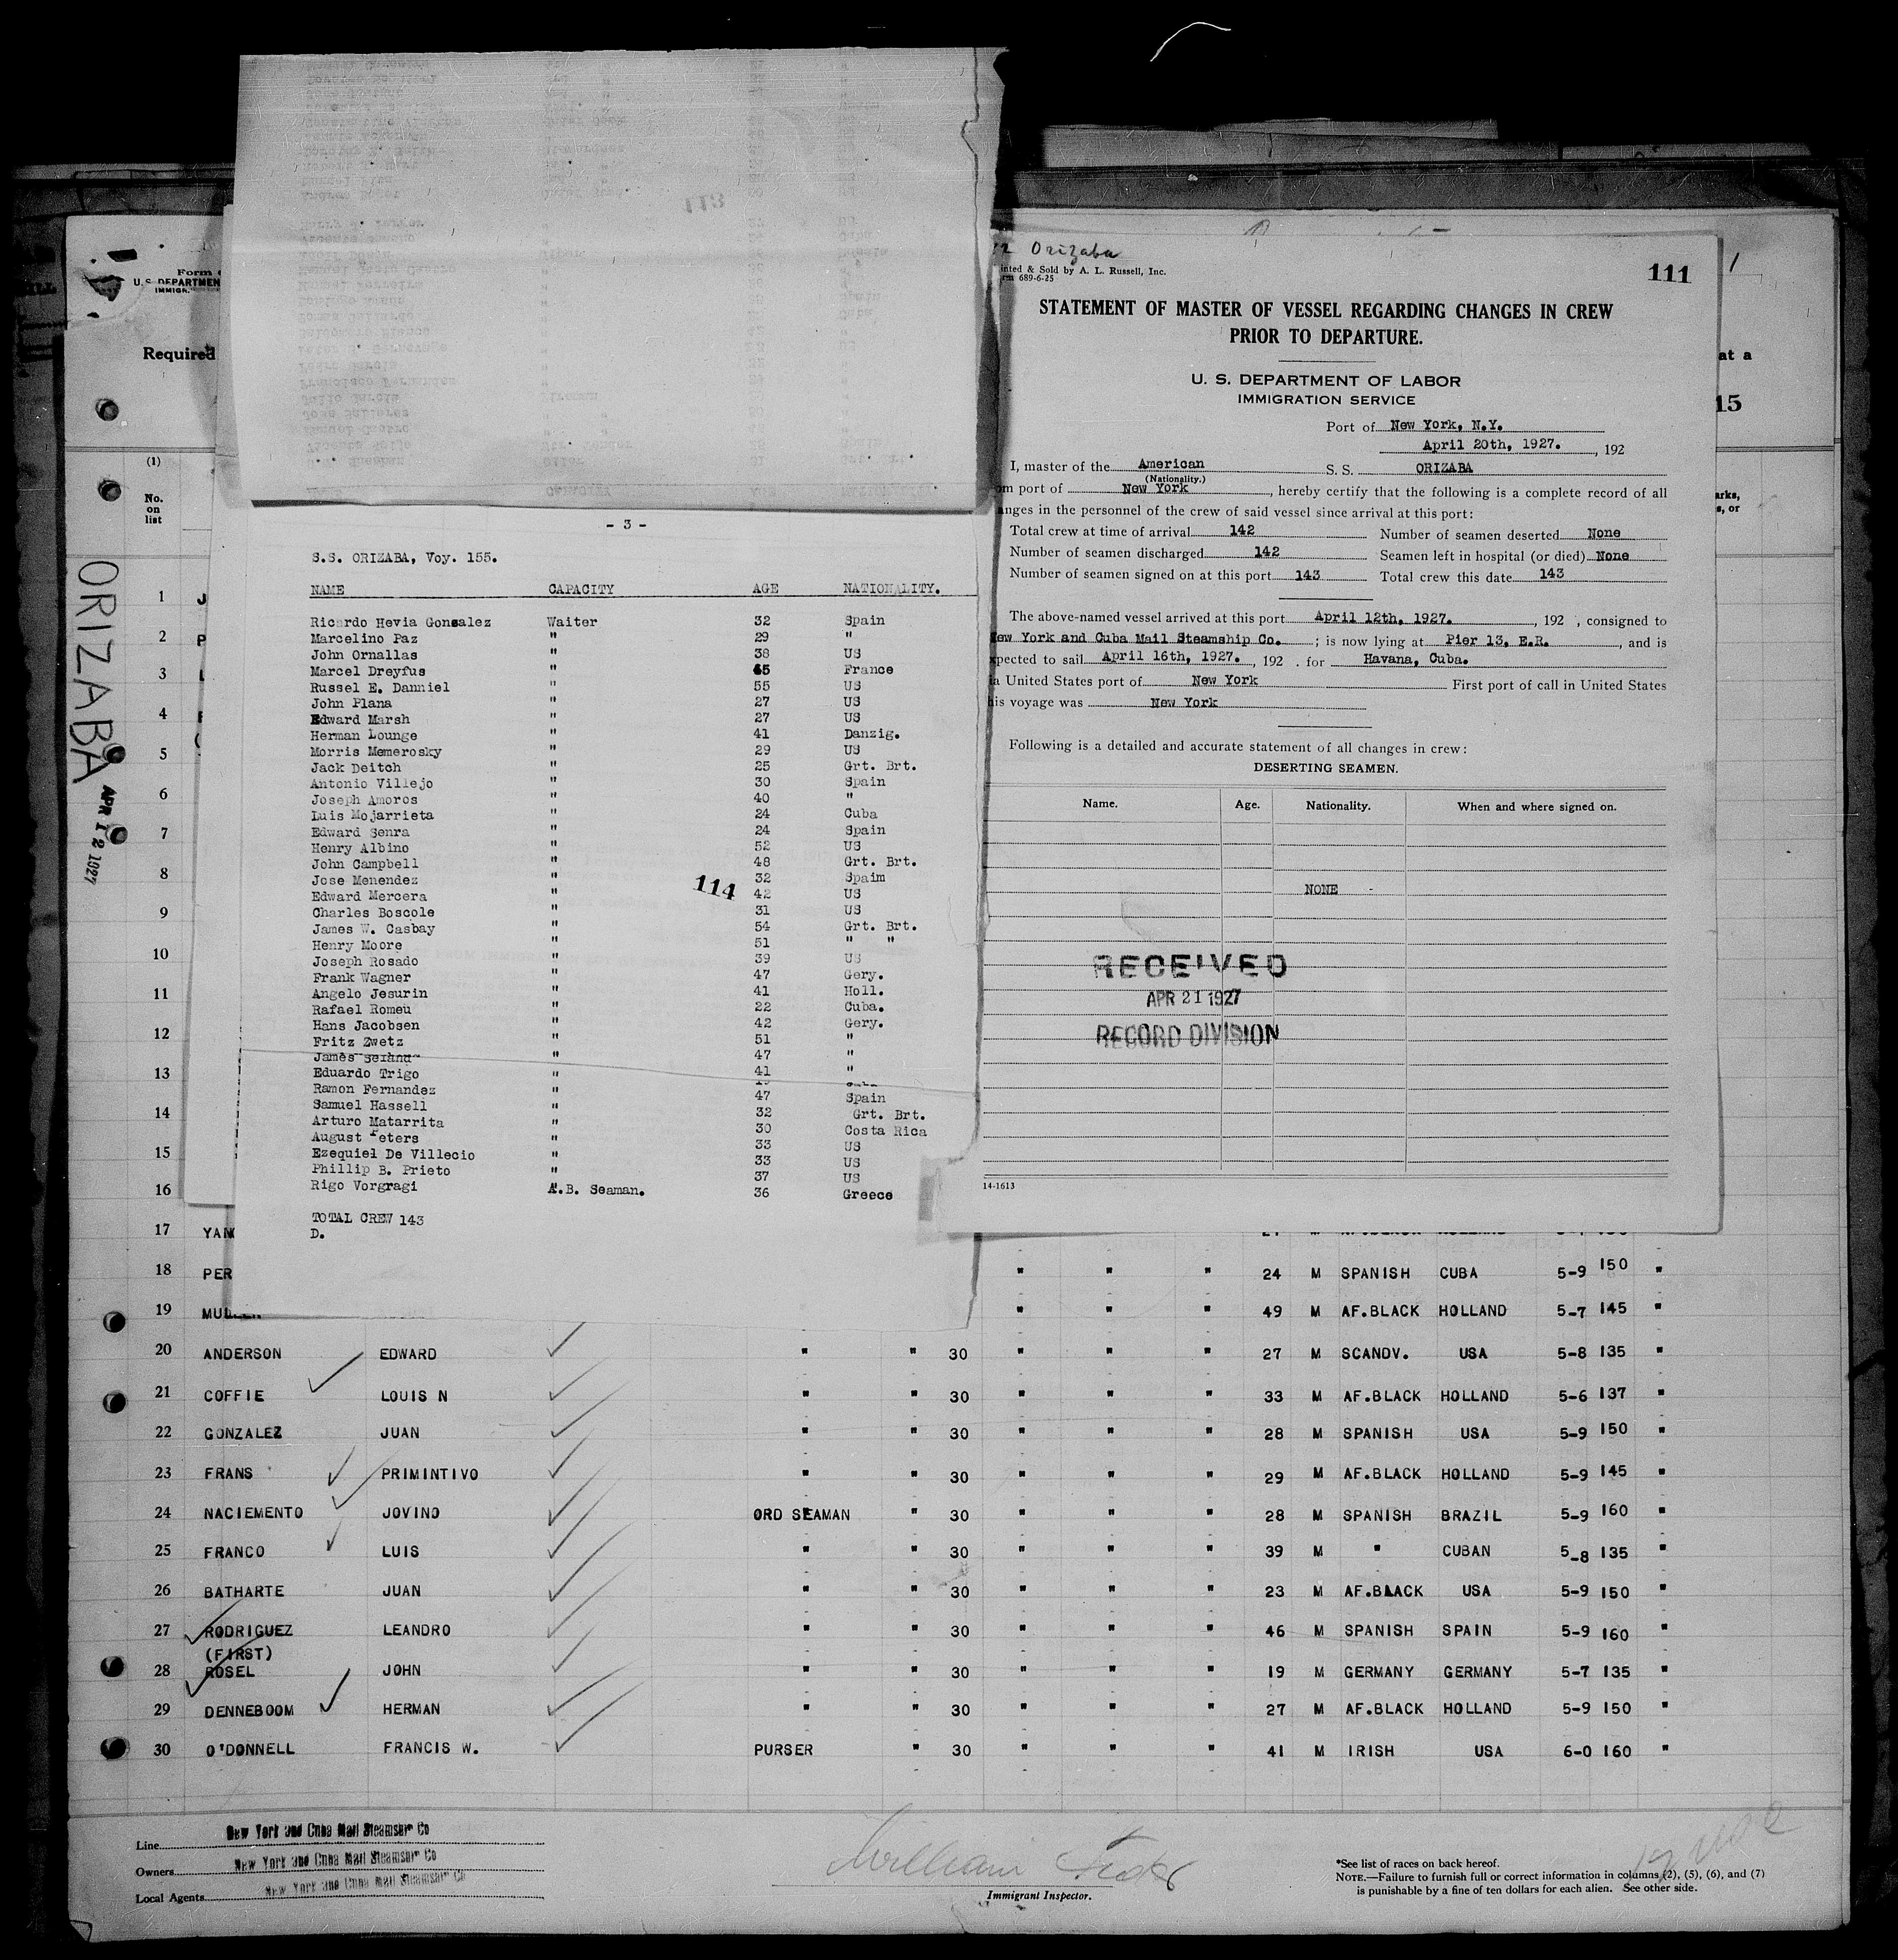 Orizaba
111
inted & Sold by A. L. Russell, Inc.
rm 689-6-25
STATEMENT OF MASTER OF VESSEL REGARDING CHANGES IN CREW
PRIOR TO DEPARTURE.
U. S. DEPARTMENT OF LABOR
IMMIGRATION SERVICE
Port of New York, N.Y.
April 20th, 1927. , 192
I, master of the American S. S. ORIZABA
(Nationality.)
om port of New York , hereby certify that the following is a complete record of all
anges in the personnel of the crew of said vessel since arrival at this port:
Total crew at time of arrival 142 Number of seamen deserted None
Number of seamen discharged 142 Seamen left in hospital (or died) None
Number of seamen signed on at this port 143 Total crew this date 143
The above-named vessel arrived at this port April 12th, 1927. , 192 , consigned to
ew York and Cuba Mail Steamship Co. ; is now lying at Pier 13, E.R. , and is
xpected to sail April 16th, 1927. , 192 . for Havana, Cuba.
ia United States port of New York First port of call in United States
his voyage was New York
Following is a detailed and accurate statement of all changes in crew:
DESERTING SEAMEN.
Name. Age. Nationality. When and where signed on.
NONE -
RECEIVED
APR 21 1927
RECORD DIVISION
14-1613
113
- 3 -
S.S. ORIZABA, Voy. 155.
NAME CAPACITY AGE NATIONALITY.
Ricardo Hevia Gonzalez Waiter 32 Spain
Marcelino Paz " 29 "
John Ornallas " 38 US
Marcel Dreyfus " 45 France
Russel E. Danniel " 55 US
John Plana " 27 US
Edward Marsh " 27 US
Herman Lounge " 41 Danzig.
Morris Memerosky " 29 US
Jack Deitch " 25 Grt. Brt.
Antonio Villejo " 30 Spain
Joseph Amoros " 40 "
Luis Mojarrieta " 24 Cuba
Edward Senra " 24 Spain
Henry Albino " 52 US
John Campbell " 48 Grt. Brt.
Jose Menendez " 32 Spaim
114
Edward Mercera " 42 US
Charles Boscole " 31 US
James W. Casbay " 54 Grt. Brt.
Henry Moore " 51 " "
Joseph Rosado " 39 US
Frank Wagner " 47 Gery.
Angelo Jesurin " 41 Holl.
Rafael Romeu " 22 Cuba.
Hans Jacobsen " 42 Gery.
Fritz Zwetz " 51 "
James " 47 "
Eduardo Trigo " 41 "
Ramon Fernandez " 47 Spain
Samuel Hassell " 32 Grt. Brt.
Arturo Matarrita " 30 Costa Rica
August Peters " 33 US
Ezequiel De Villecio " 33 US
Phillip B. Prieto " 37 US
Rigo Vorgragi A.B. Seaman. 36 Greece
TOTAL CREW 143
D.
Form
U. S. DEPARTMEN
IMMIGR
Required
at a
15
(1)
No.
on
list
arks,
s, or
ORIZABA
APR 12 1927
1 J
2 P
3 L
4
5
6
7
8
9
10
11
12
13
14
15
16
17 YAN
18 PER " " " 24 M SPANISH CUBA 5-9 150 "
19 MULLEN " " " 49 M AF.BLACK HOLLAND 5-7 145 "
20 ANDERSON EDWARD " " 30 " " " 27 M SCANDV. USA 5-8 135 "
21 COFFIE LOUIS N " " 30 " " " 33 M AF.BLACK HOLLAND 5-6 137 "
22 GONZALEZ JUAN " " 30 " " " 28 M SPANISH USA 5-9 150 "
23 FRANS PRIMINTIVO " " 30 " " " 29 M AF.BLACK HOLLAND 5-9 145 "
24 NACIEMENTO JOVINO ORD SEAMAN " 30 " " " 28 M SPANISH BRAZIL 5-9 160 "
25 FRANCO LUIS " " 30 " " " 39 M " CUBAN 5-8 135 "
26 BATHARTE JUAN " " 30 " " " 23 M AF.BLACK USA 5-9 150 "
27 RODRIGUEZ LEANDRO " " 30 " " " 46 M SPANISH SPAIN 5-9 160 "
(FIRST)
28 ROSEL JOHN " " 30 " " " 19 M GERMANY GERMANY 5-7 135 "
29 DENNEBOOM HERMAN " " 30 " " " 27 M AF.BLACK HOLLAND 5-9 150 "
30 O'DONNELL FRANCIS W. PURSER " 30 " " " 41 M IRISH USA 6-0 160 "
Line New York and Cuba Mail Steamship Co
Owners New York and Cuba Mail Steamship Co
Local Agents New York and Cuba Mail Steamship Co
William
Immigrant Inspector.
*See list of races on back hereof.
NOTE.—Failure to furnish full or correct information in columns (2), (5), (6), and (7)
is punishable by a fine of ten dollars for each alien. See other side.